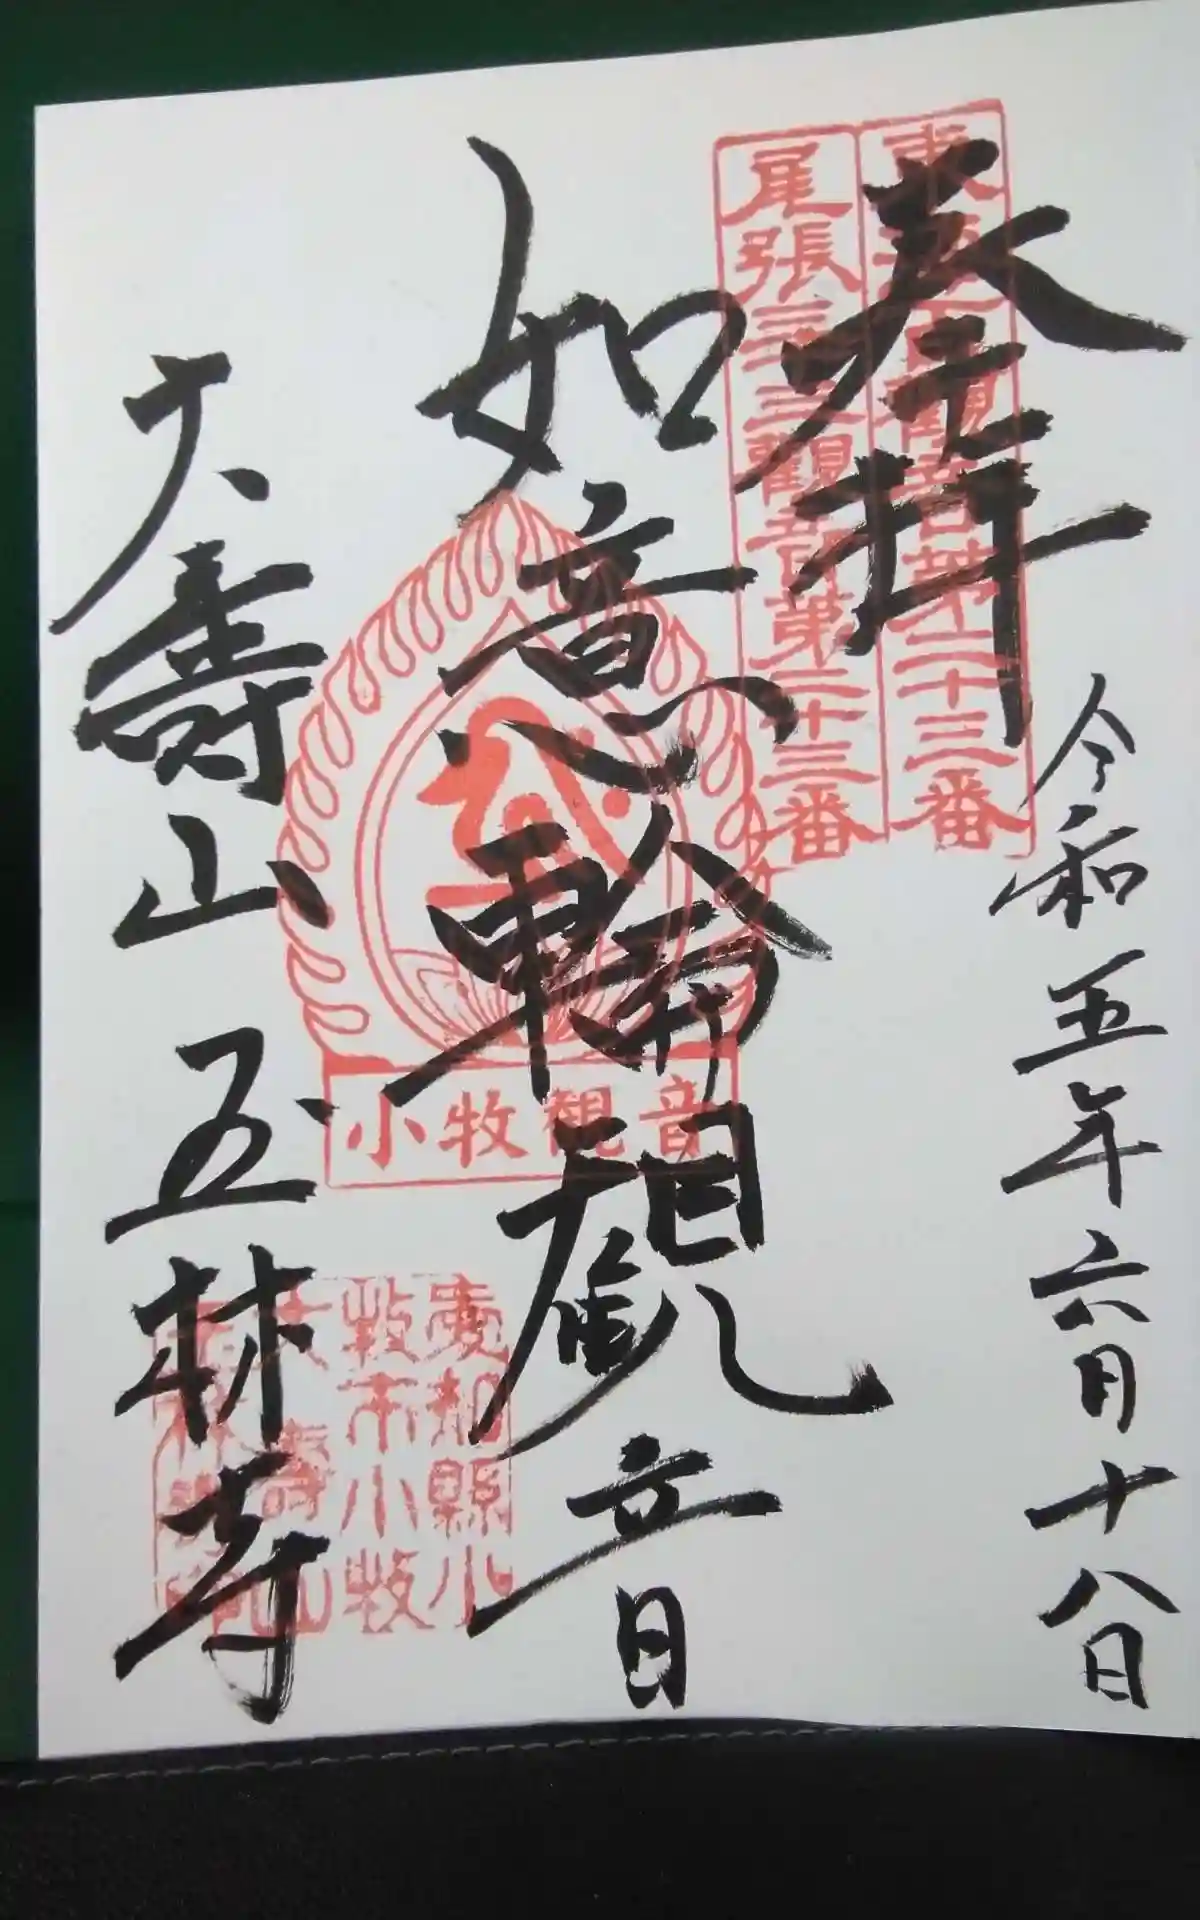 奉拝
令和五年六月十八日
東海百観音第二十三番
尾張三十三観音第二十三番
如意輪観音
小牧観音
大壽山 玉林寺
愛知縣小
牧市小牧
大壽山
玉林寺